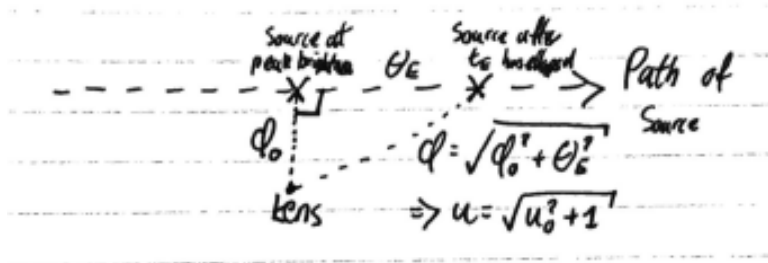 Source at peak brightness
Source after t_E has elapsed
θ_E
Path of Source
φ₀
φ = √(φ₀² + θ_E²)
Lens
⇒ u = √(u₀² + 1)